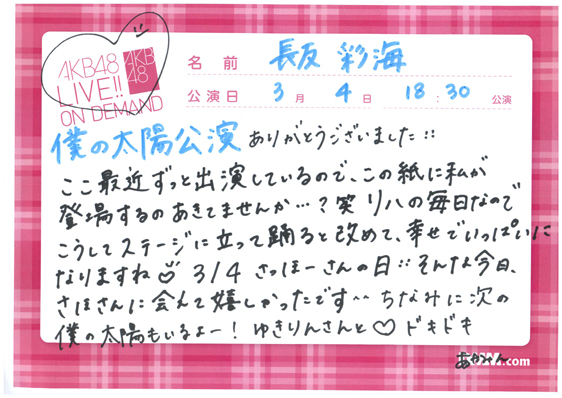 AKB48
LIVE!!
ON DEMAND
AKB
48
名前 長友 彩海
公演日 3月 4日 18:30 公演
僕の太陽公演 ありがとうございました::
ここ最近ずっと出演しているので、この紙に私が
登場するのあきてませんか…?笑 リハの毎日なので
こうしてステージに立って踊ると改めて、幸せでいっぱいに
なりますね♡ 3/4 さっほーさんの日:: そんな今日、
さほさんに会えて嬉しかったです^^ ちなみに次の
僕の太陽もいるよー! ゆきりんさんと♡ ドキドキ
.com